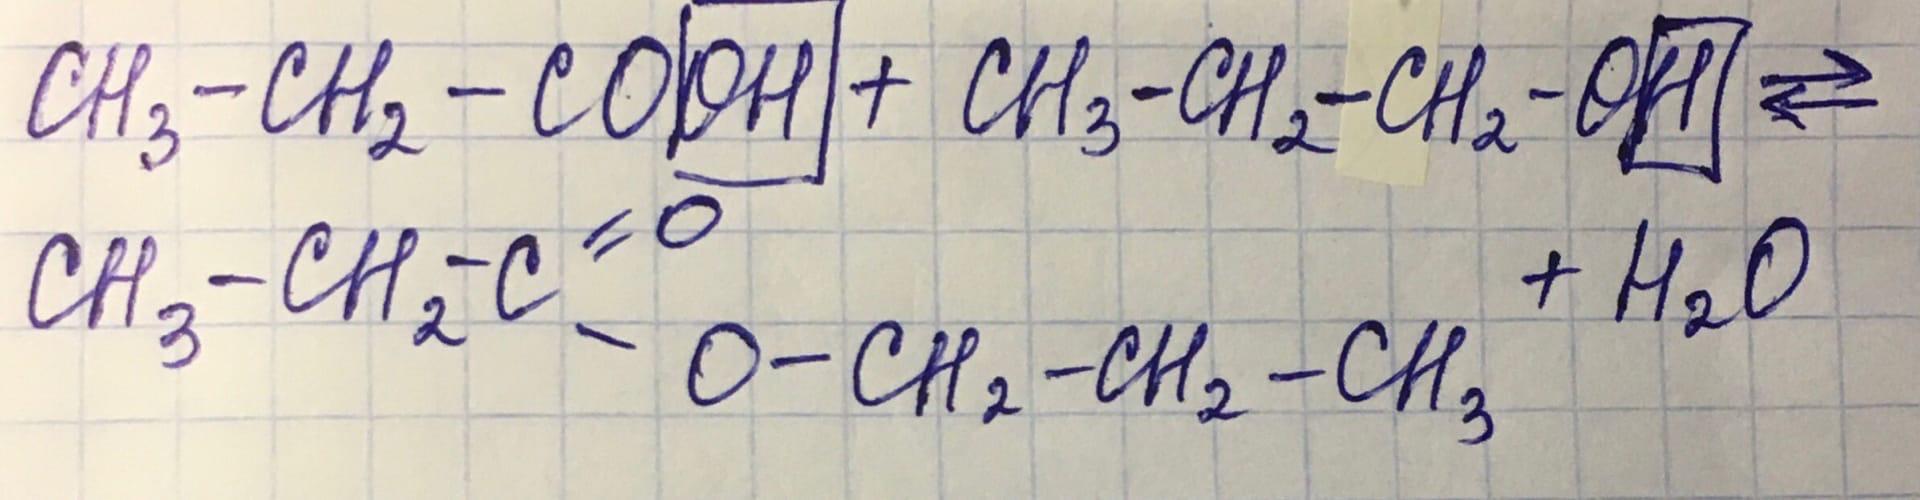 CH₃-CH₂-COOH + CH₃-CH₂-CH₂-OH ⇄
CH₃-CH₂-C=O
-O-CH₂-CH₂-CH₃ + H₂O